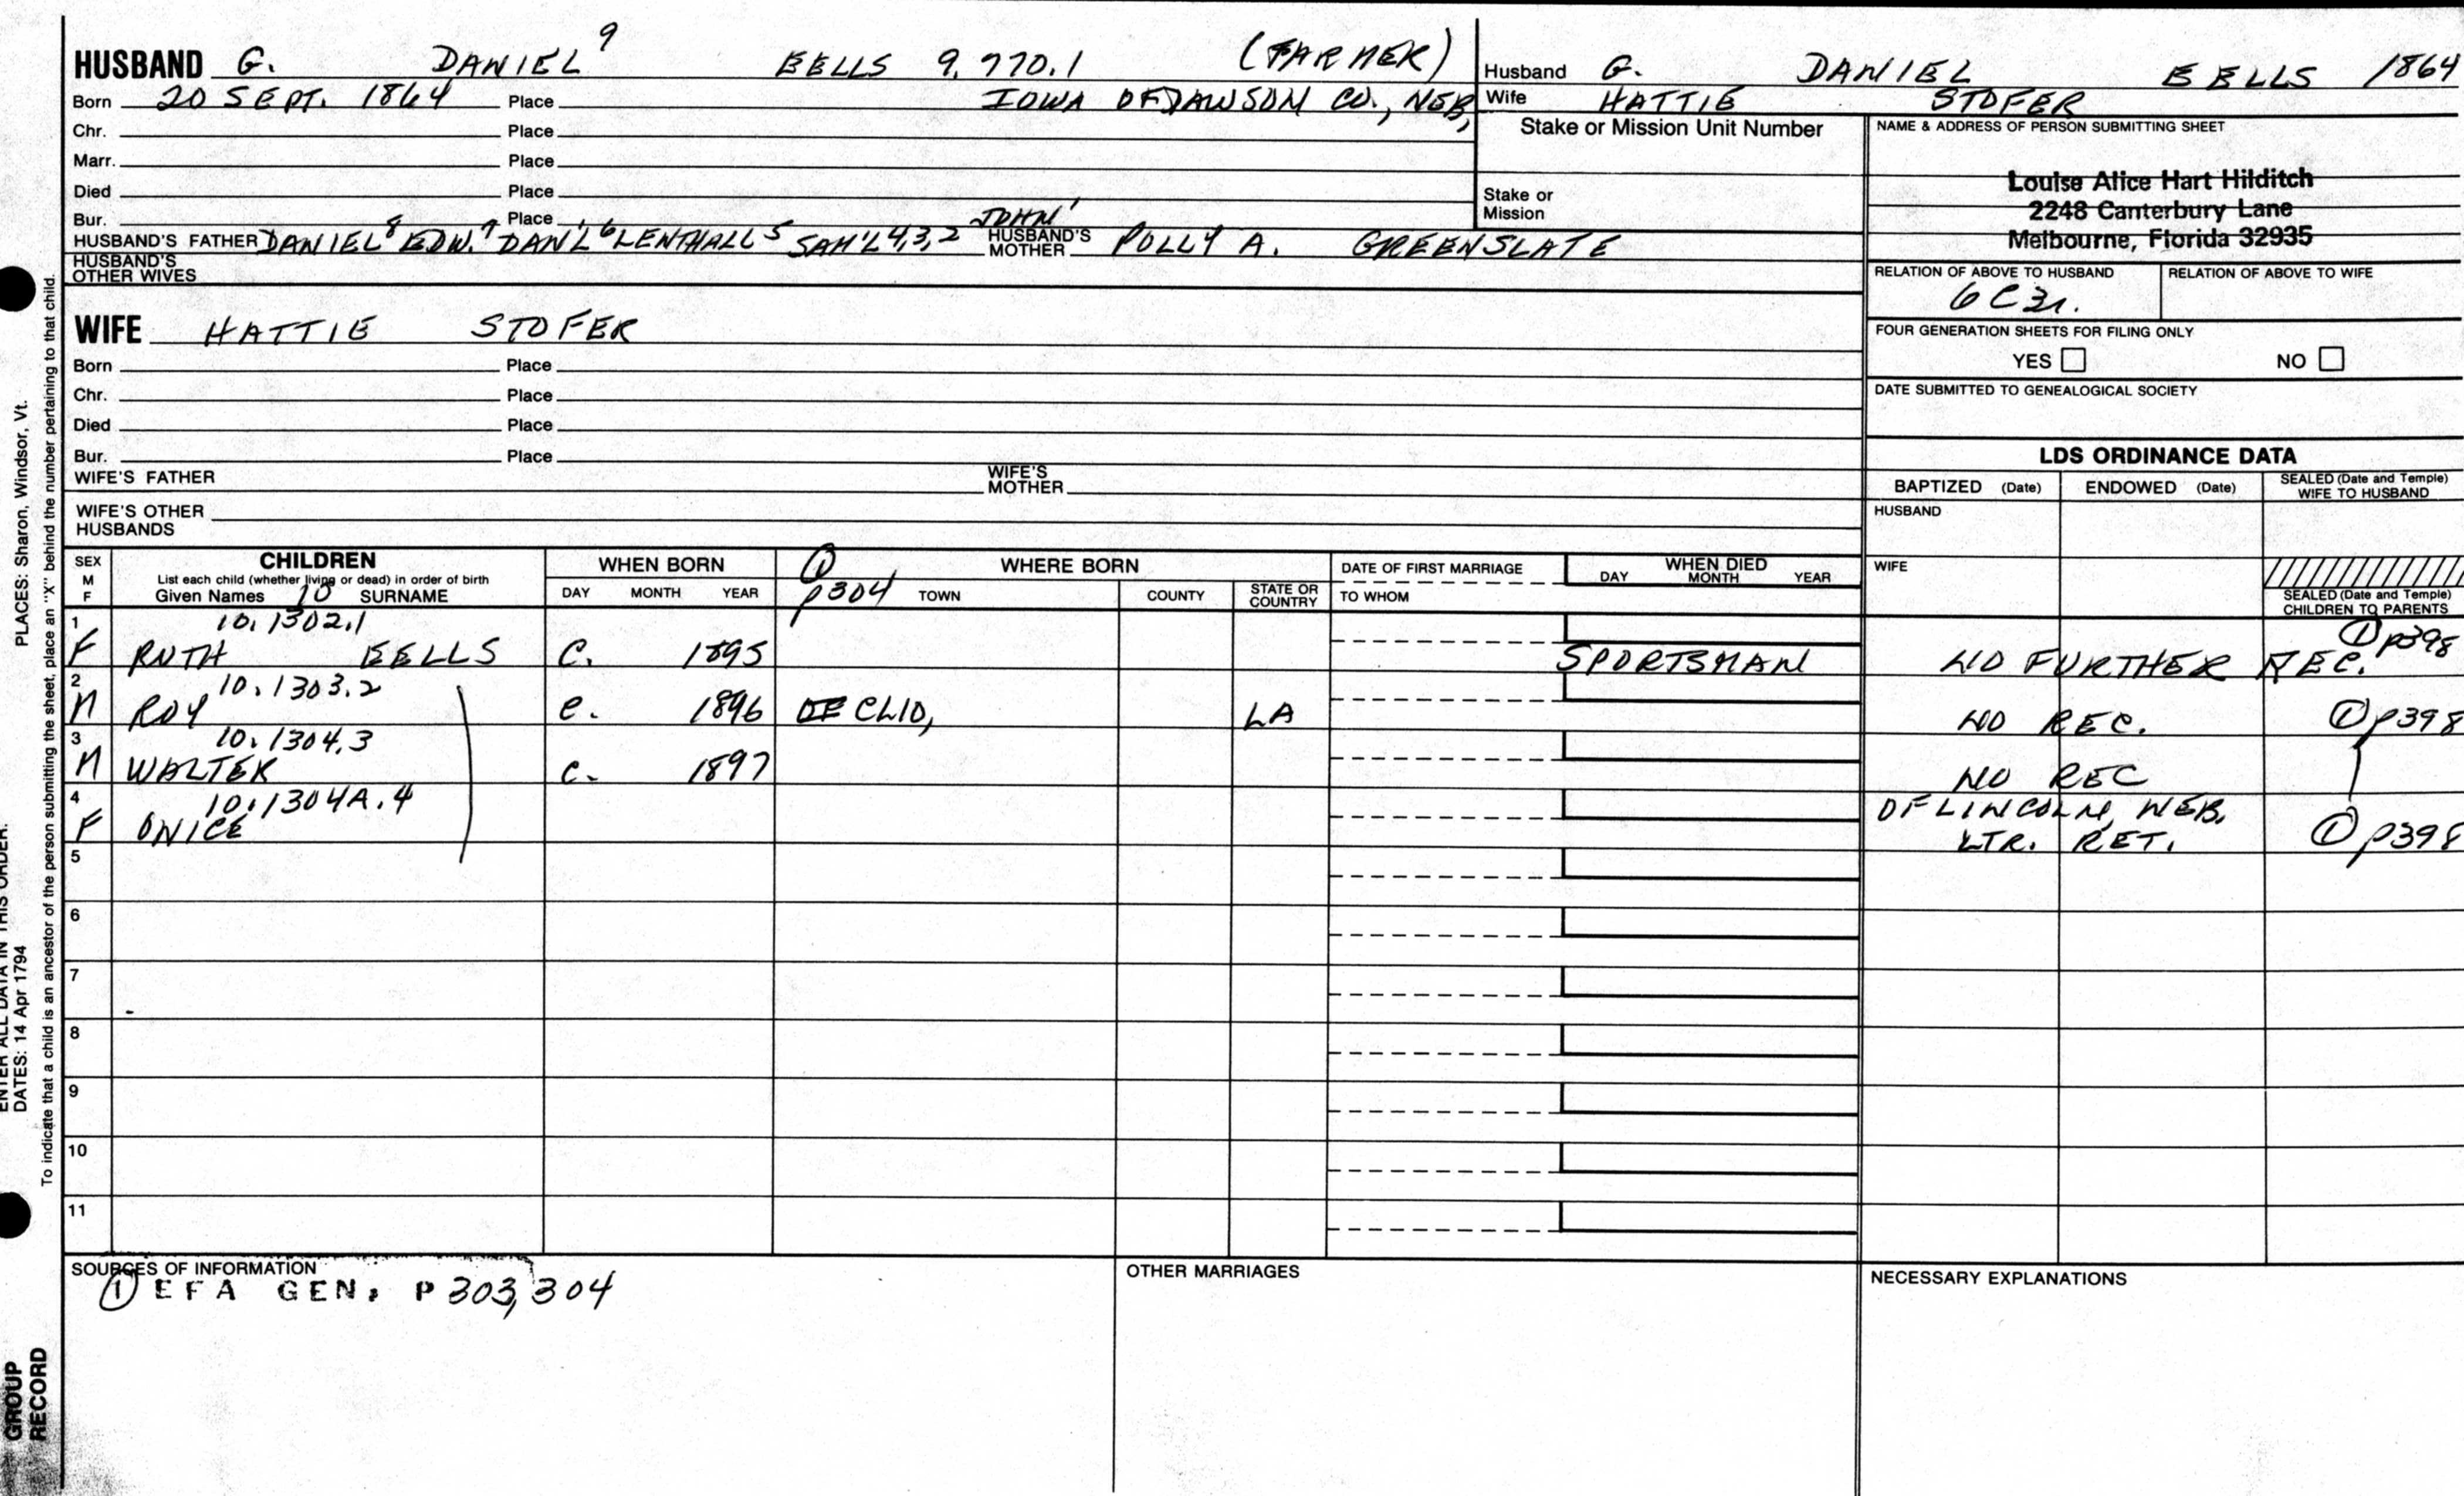 HUSBAND G. DANIEL 9 EELLS 9,770.1 (FARMER)
Born 20 SEPT. 1864 Place IOWA OF DAWSON CO., NEB,
Chr. Place
Marr. Place
Died Place
Bur. Place
HUSBAND'S FATHER DANIEL 8 EDW. 7 DAN'L 6 LENTHALL 5 SAM'L 4,3,2 JOHN 1 HUSBAND'S MOTHER POLLY A. GREENSLATE
HUSBAND'S OTHER WIVES
WIFE HATTIE STOFER
Born Place
Chr. Place
Died Place
Bur. Place
WIFE'S FATHER WIFE'S MOTHER
WIFE'S OTHER HUSBANDS
Husband G. DANIEL EELLS 1864
Wife HATTIE STOFER
Stake or Mission Unit Number
Stake or Mission
NAME & ADDRESS OF PERSON SUBMITTING SHEET
Louise Alice Hart Hilditch
2248 Canterbury Lane
Melbourne, Florida 32935
RELATION OF ABOVE TO HUSBAND RELATION OF ABOVE TO WIFE
6C3r.
FOUR GENERATION SHEETS FOR FILING ONLY
YES NO
DATE SUBMITTED TO GENEALOGICAL SOCIETY
LDS ORDINANCE DATA
BAPTIZED (Date) ENDOWED (Date) SEALED (Date and Temple) WIFE TO HUSBAND
HUSBAND
WIFE
SEALED (Date and Temple) CHILDREN TO PARENTS
SEX M F
CHILDREN
List each child (whether living or dead) in order of birth
Given Names 10 SURNAME
WHEN BORN
DAY MONTH YEAR
① p304
WHERE BORN
TOWN COUNTY STATE OR COUNTRY
DATE OF FIRST MARRIAGE
TO WHOM
WHEN DIED
DAY MONTH YEAR
1 10.1302.1 ① p398
F RUTH EELLS C. 1895 SPORTSMAN NO FURTHER REC.
2 10.1303.2
M ROY C. 1896 OF CLIO, LA NO REC. ① p398
3 10.1304.3
M WALTER C. 1897 NO REC
4 10.1304A.4 OF LINCOLN, NEB.
F ONICE LTR. RET. ① p398
5
6
7
8
9
10
11
SOURCES OF INFORMATION
① EFA GEN. P 303, 304
OTHER MARRIAGES
NECESSARY EXPLANATIONS
PLACES: Sharon, Windsor, Vt.
ENTER ALL DATA IN THIS ORDER:
DATES: 14 Apr 1794
To indicate that a child is an ancestor of the person submitting the sheet, place an "X" behind the number pertaining to that child.
GROUP RECORD